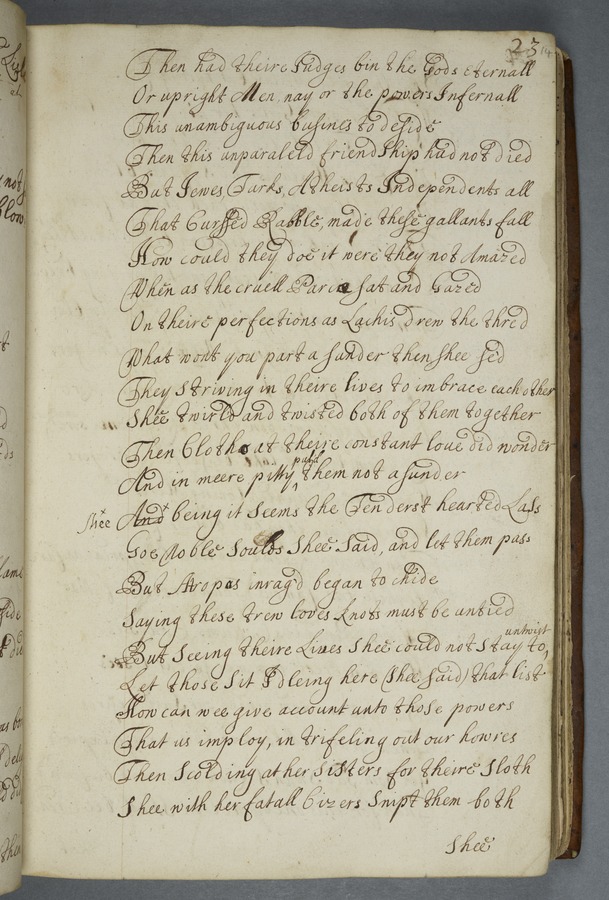 23
Then had theire Judges bin the Gods eternall
Or upright Men, nay or the powers Infernall
This unambiguous busines to deside
Then this unparaleld friendship had not died
But Jewes, Turks, Atheists, Independents all
That Curssed Rabble, made these gallants fall
How could they doe it were they not Amazed
When as the cruell Parcie sat and Gazed
On theire perfections as Lachis drew the thred
What wont you part a sunder then shee sed
They striving in theire lives to imbrace each other
Shee twirld and twisted both of them together
Then Clotho at theire constant love did wonder
And in meere pitty pasd them not a sunder
Shee And being it seems the Tenderst hearted Lass
Goe Noble Soules Shee Said, and let them pass
But Atropas inrag'd began to chide
Saying these trew loves knots must be untied
But Seeing theire Lives shee could not stay to untwist
Let those Sit Idleing here (Shee Said) that list
How can wee give account unto those powers
That us imploy, in trifeling out our howres
Then Scolding at her Sisters for theire Sloth
Shee with her fatall Cizers Snipt them both
Shee